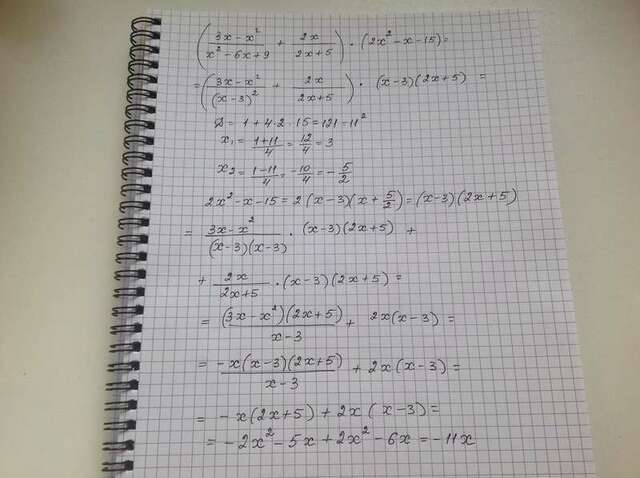 (3x-x²/x²-6x+9 + 2x/2x+5) · (2x²-x-15)=
=(3x-x²/(x-3)² + 2x/2x+5) · (x-3)(2x+5) =
D = 1+4·2·15=121=11²
x₁ = 1+11/4 = 12/4 = 3
x₂ = 1-11/4 = -10/4 = -5/2
2x²-x-15 = 2(x-3)(x+5/2)=(x-3)(2x+5)
= 3x-x²/(x-3)(x-3) · (x-3)(2x+5) +
+ 2x/2x+5 · (x-3)(2x+5) =
= (3x-x²)(2x+5)/x-3 + 2x(x-3) =
= -x(x-3)(2x+5)/x-3 + 2x(x-3) =
= -x(2x+5) + 2x(x-3) =
= -2x²-5x+2x²-6x = -11x